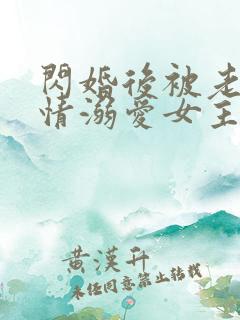 閃婚後被老
情溺愛女主
黃漢升
未經同意禁止轉載